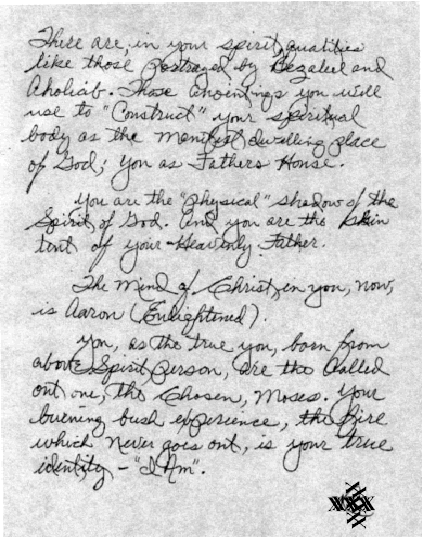 There are, in your spirit, qualities
like those portrayed by Bezaleel and
Aholiab. Those anointings you will
use to "Construct" your spiritual
body as the manifest dwelling place
of God; you as Fathers House.
you are the "physical" shadow of the
Spirit of God. And you are the skin
tent of your Heavenly Father.
The mind of Christ, in you, now,
is Aaron (Enlightened).
you, as the true you, born from
above Spirit person, are the Called
out one, the Chosen, Moses. Your
burning bush experience, the fire
which never goes out, is your true
identity - "I Am".